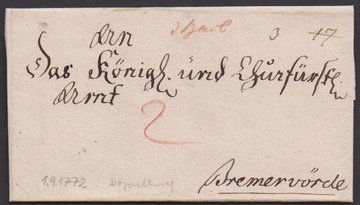 An
Das Königl. und Churfürstl.
Amt
2
3 17
Bremervörde
1.9.1772